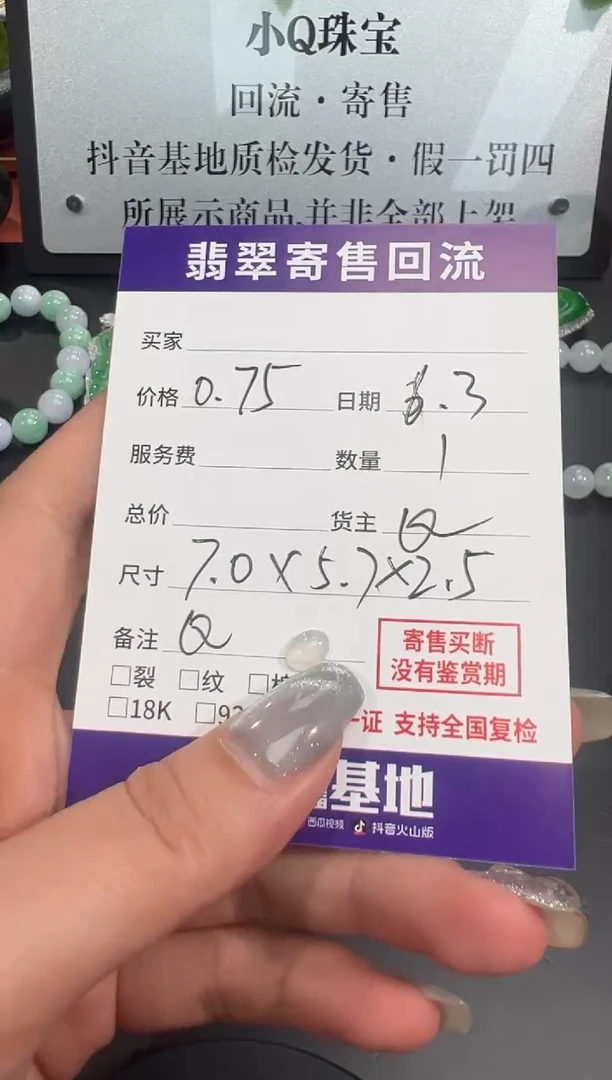 小Q珠宝
回流·寄售
抖音基地质检发货·假一罚四
所展示商品,并非全部上架
翡翠寄售回流
买家
价格 0.75 日期 6.3
服务费 数量 1
总价 货主 Q
尺寸 7.0×5.7×2.5
备注 Q
寄售买断
没有鉴赏期
□裂 □纹 □
□18K □92
一证 支持全国复检
基地
西瓜视频 抖音火山版